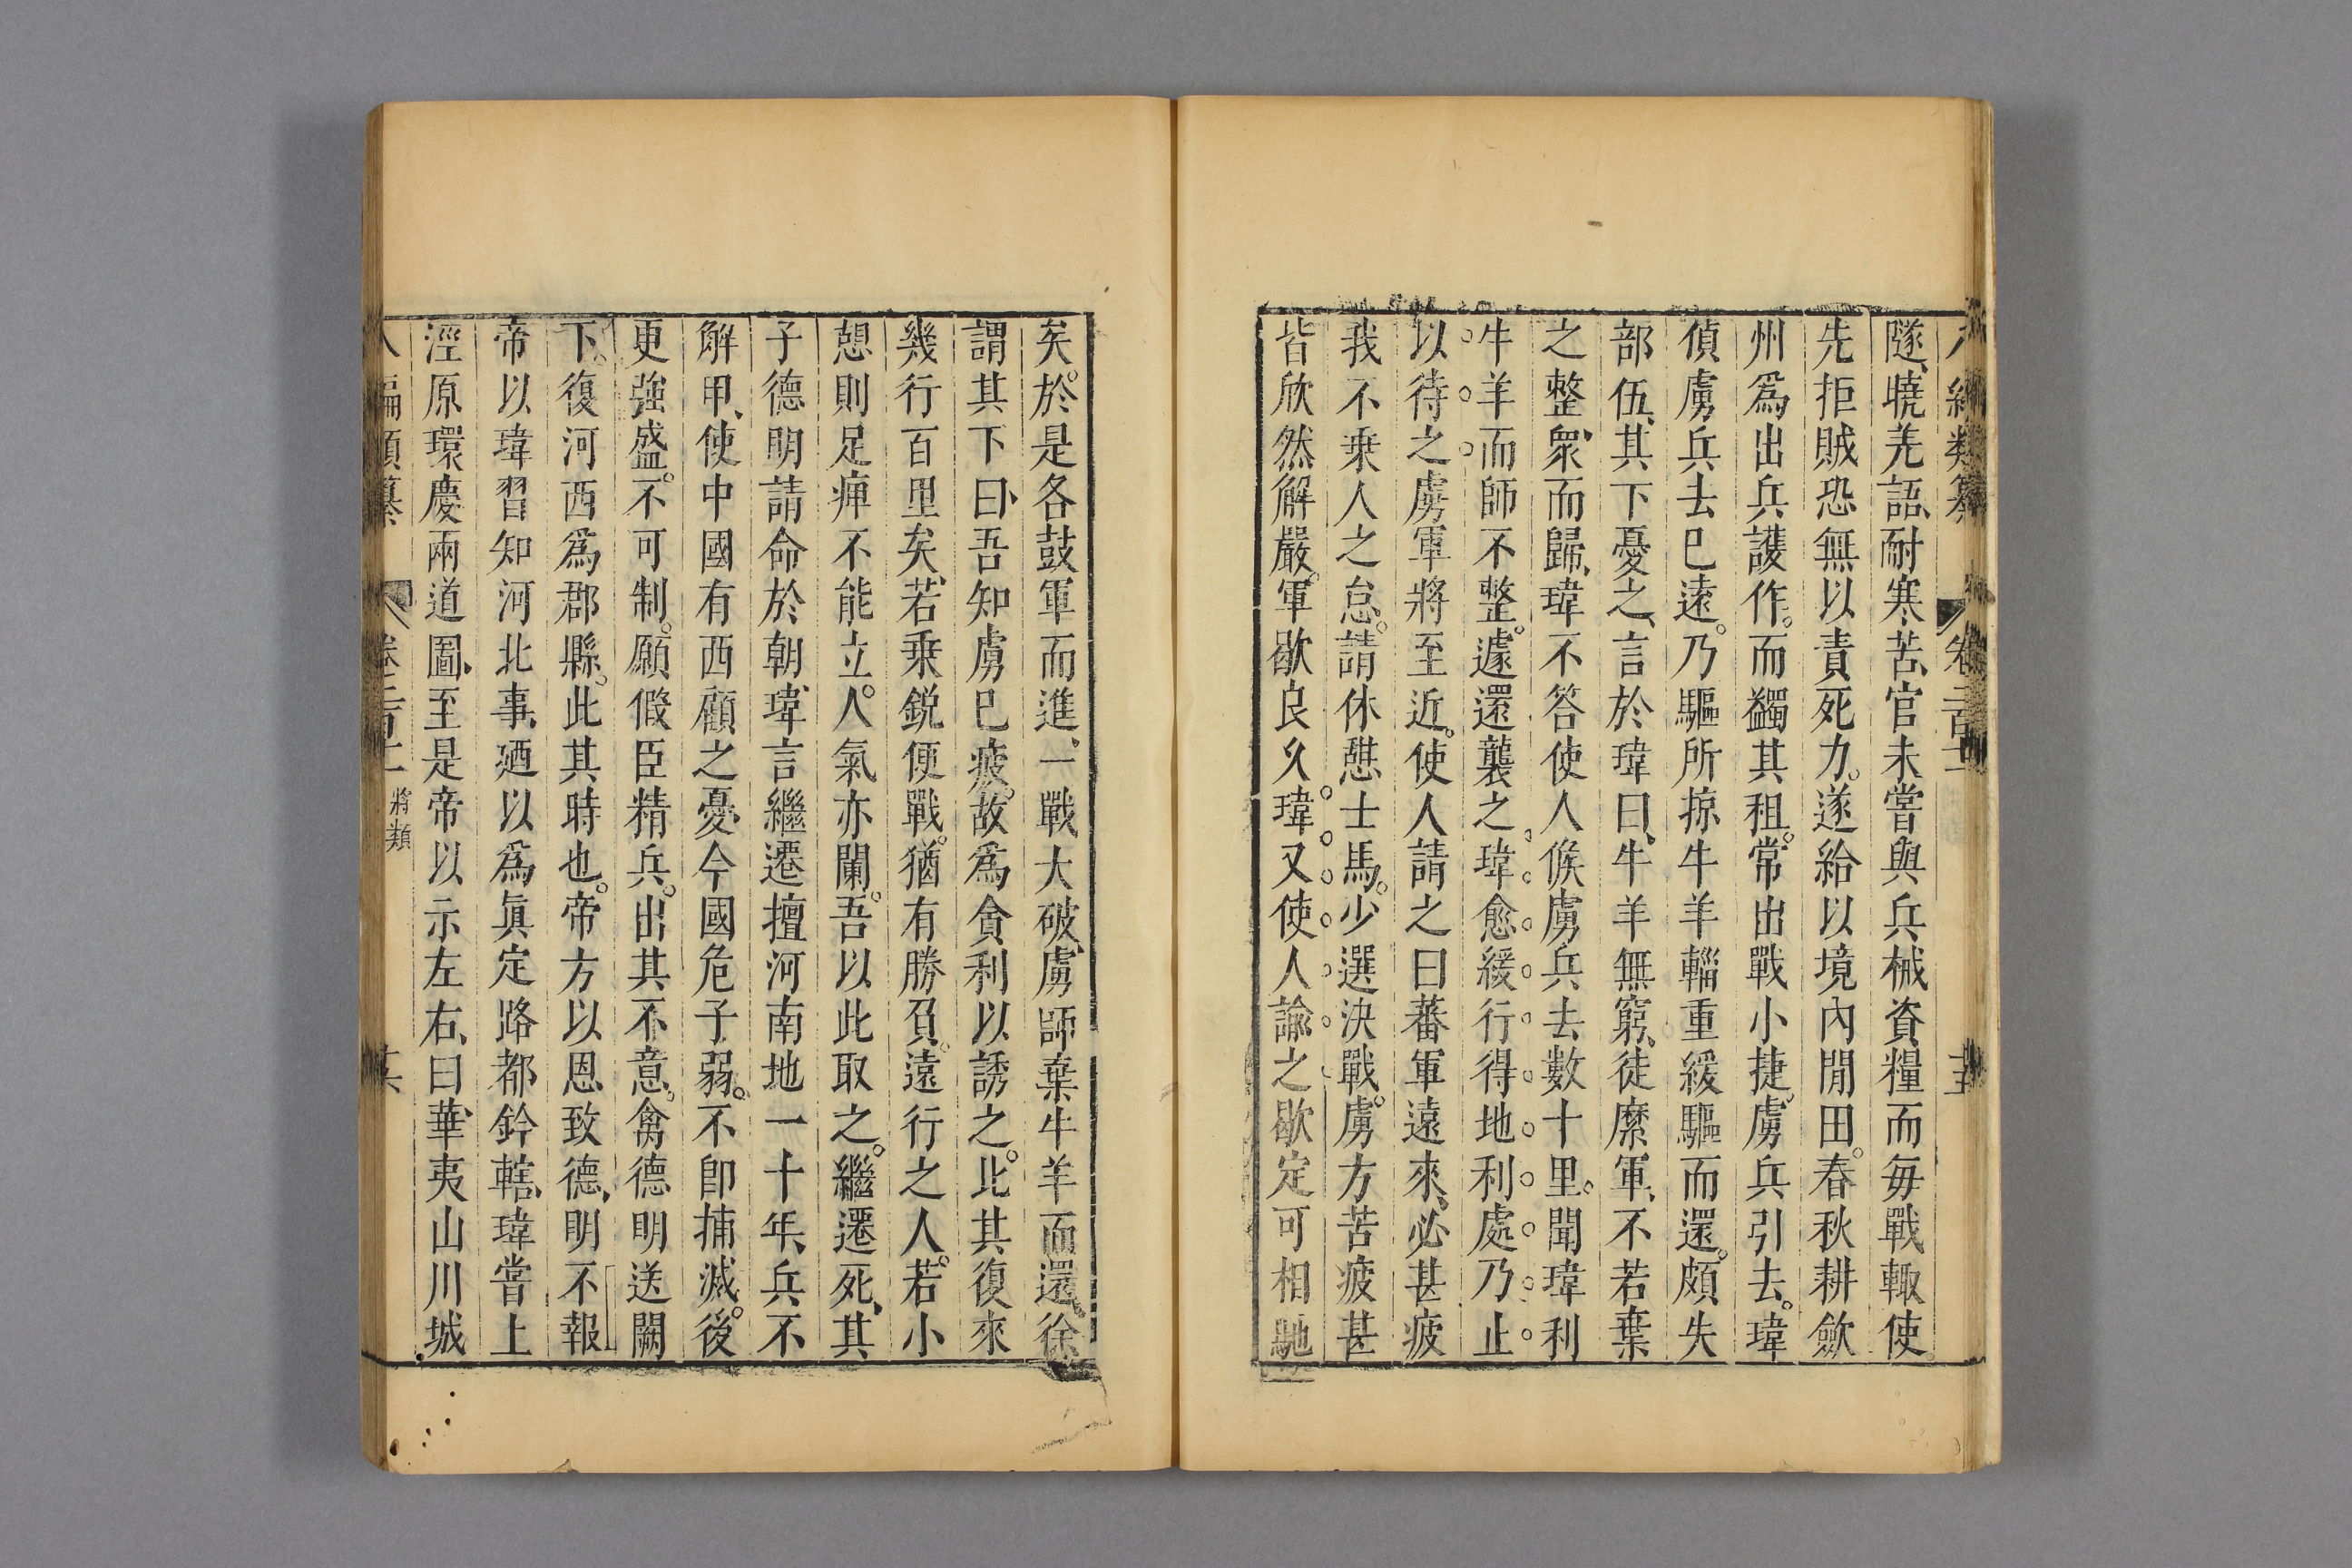 隧、曉羌語、耐寒苦、官未嘗與兵械資糧而毎戰輙使
先拒賊恐無以責死力。遂給以境內閒田。春秋耕斂
州爲出兵護作。而蠲其租。常出戰小捷、虜兵引去。瑋
偵虜兵去已遠。乃驅所掠牛羊輜重緩驅而還。頗失
部伍、其下憂之、言於瑋曰、牛羊無窮、徒縻軍、不若棄
之整衆而歸、瑋不答使人候虜兵去數十里。聞瑋利
牛羊而師不整。遽還襲之瑋愈緩行得地利處乃止
以待之虜軍將至近。使人請之曰蕃軍遠來、必甚疲
我不乗人之怠。請休憇士馬。少選決戰。虜方苦疲甚
皆欣然解嚴。軍歇良久瑋又使人諭之歇定可相馳
矣。於是各鼓軍而進、一戰大破虜師棄牛羊而還、徐
謂其下曰、吾知虜已疲。故爲貪利以誘之。比其復來
幾行百里矣、若乗銳便戰。猶有勝負。遠行之人。若小
憩則足痺不能立。人氣亦闌。吾以此取之。繼遷死、其
子德明請命於朝、瑋言繼遷擅河南地一十年、兵不
解甲、使中國有西顧之憂今國危子弱。不卽捕滅。後
更強盛。不可制。願假臣精兵。出其不意。禽德明送闕
下。復河西爲郡縣。此其時也。帝方以恩致德、明不報
帝以瑋習知河北事、廼以爲眞定路都鈐轄、瑋嘗上
涇原環慶兩道圖、至是帝以示左右、曰華夷山川城
將類